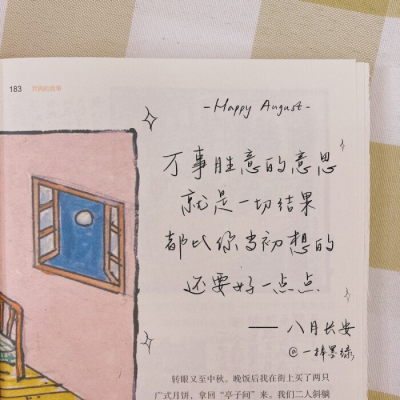 183
- Happy August -
万事胜意的意思
就是一切结果
都比你当初想的
还要好一点点
—— 八月长安
转眼又至中秋。晚饭后我在街上买了两只
广式月饼，拿回“亭子间”来。我们二人斜躺